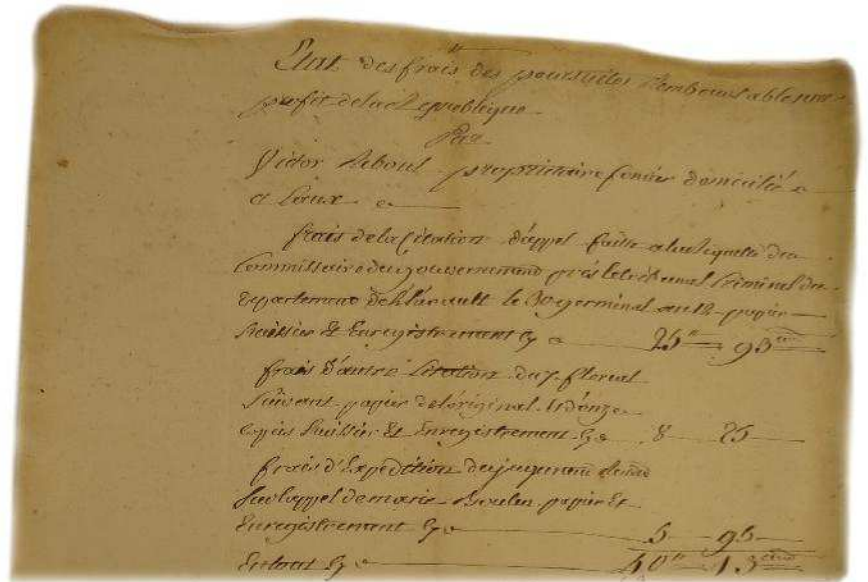 Etat des frais des poursuites Remboursables au
profit de la Republique
Par
Victor Reboul proprietaire foncier domicilié
a
frais de la Citation d'appel faitte a la Requette du
Commissaire du gouvernement près le tribunal Criminel du
Departement de l'hérault le 30 germinal an 12 papier
huissier Et Enregistrement Cy 25 93
frais d'autre Citation du 7 floreal
Suivant papier de l'original et d'onze
copies huissier Et Enregistrement Cy 8 25
frais d'Expedition du jugement
Sur l'appel de marie papier Et
Enregistrement Cy 5 95
En tout Cy 40 13